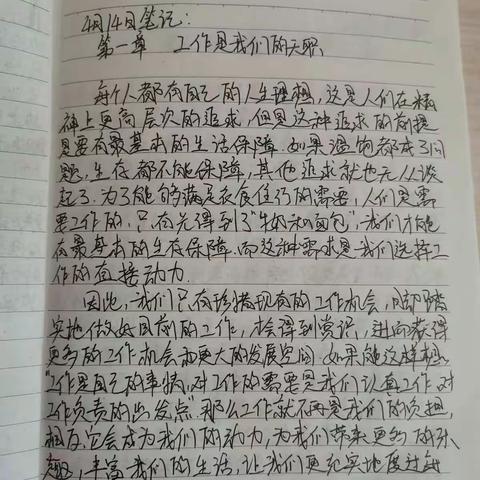 4月14日笔记:
第一章 工作是我们的天职、
每个人都有自己的人生理想,这是人们在精
神上更高层次的追求,但是这种追求的前提
是要有最基本的生活保障.如果温饱都成了问
题,生存都不能保障,其他追求就也无从谈
起了.为了能够满足衣食住行的需要,人们是需
要工作的,只有先得到了“牛奶和面包”,我们才能
有最基本的生存保障.而这种需求是我们选择工
作的直接动力.
因此,我们只有珍惜现有的工作机会,脚踏
实地做好目前的工作,才会得到赏识,进而获得
更多的工作机会和更大的发展空间.如果能这样想:
“工作是自己的事情,对工作的需要是我们认真工作,对
工作负责的出发点”那么工作就不再是我们的负担,
相反,它会成为我们的动力,为我们带来更多的乐
趣,丰富我们的生活,让我们更充实地度过每